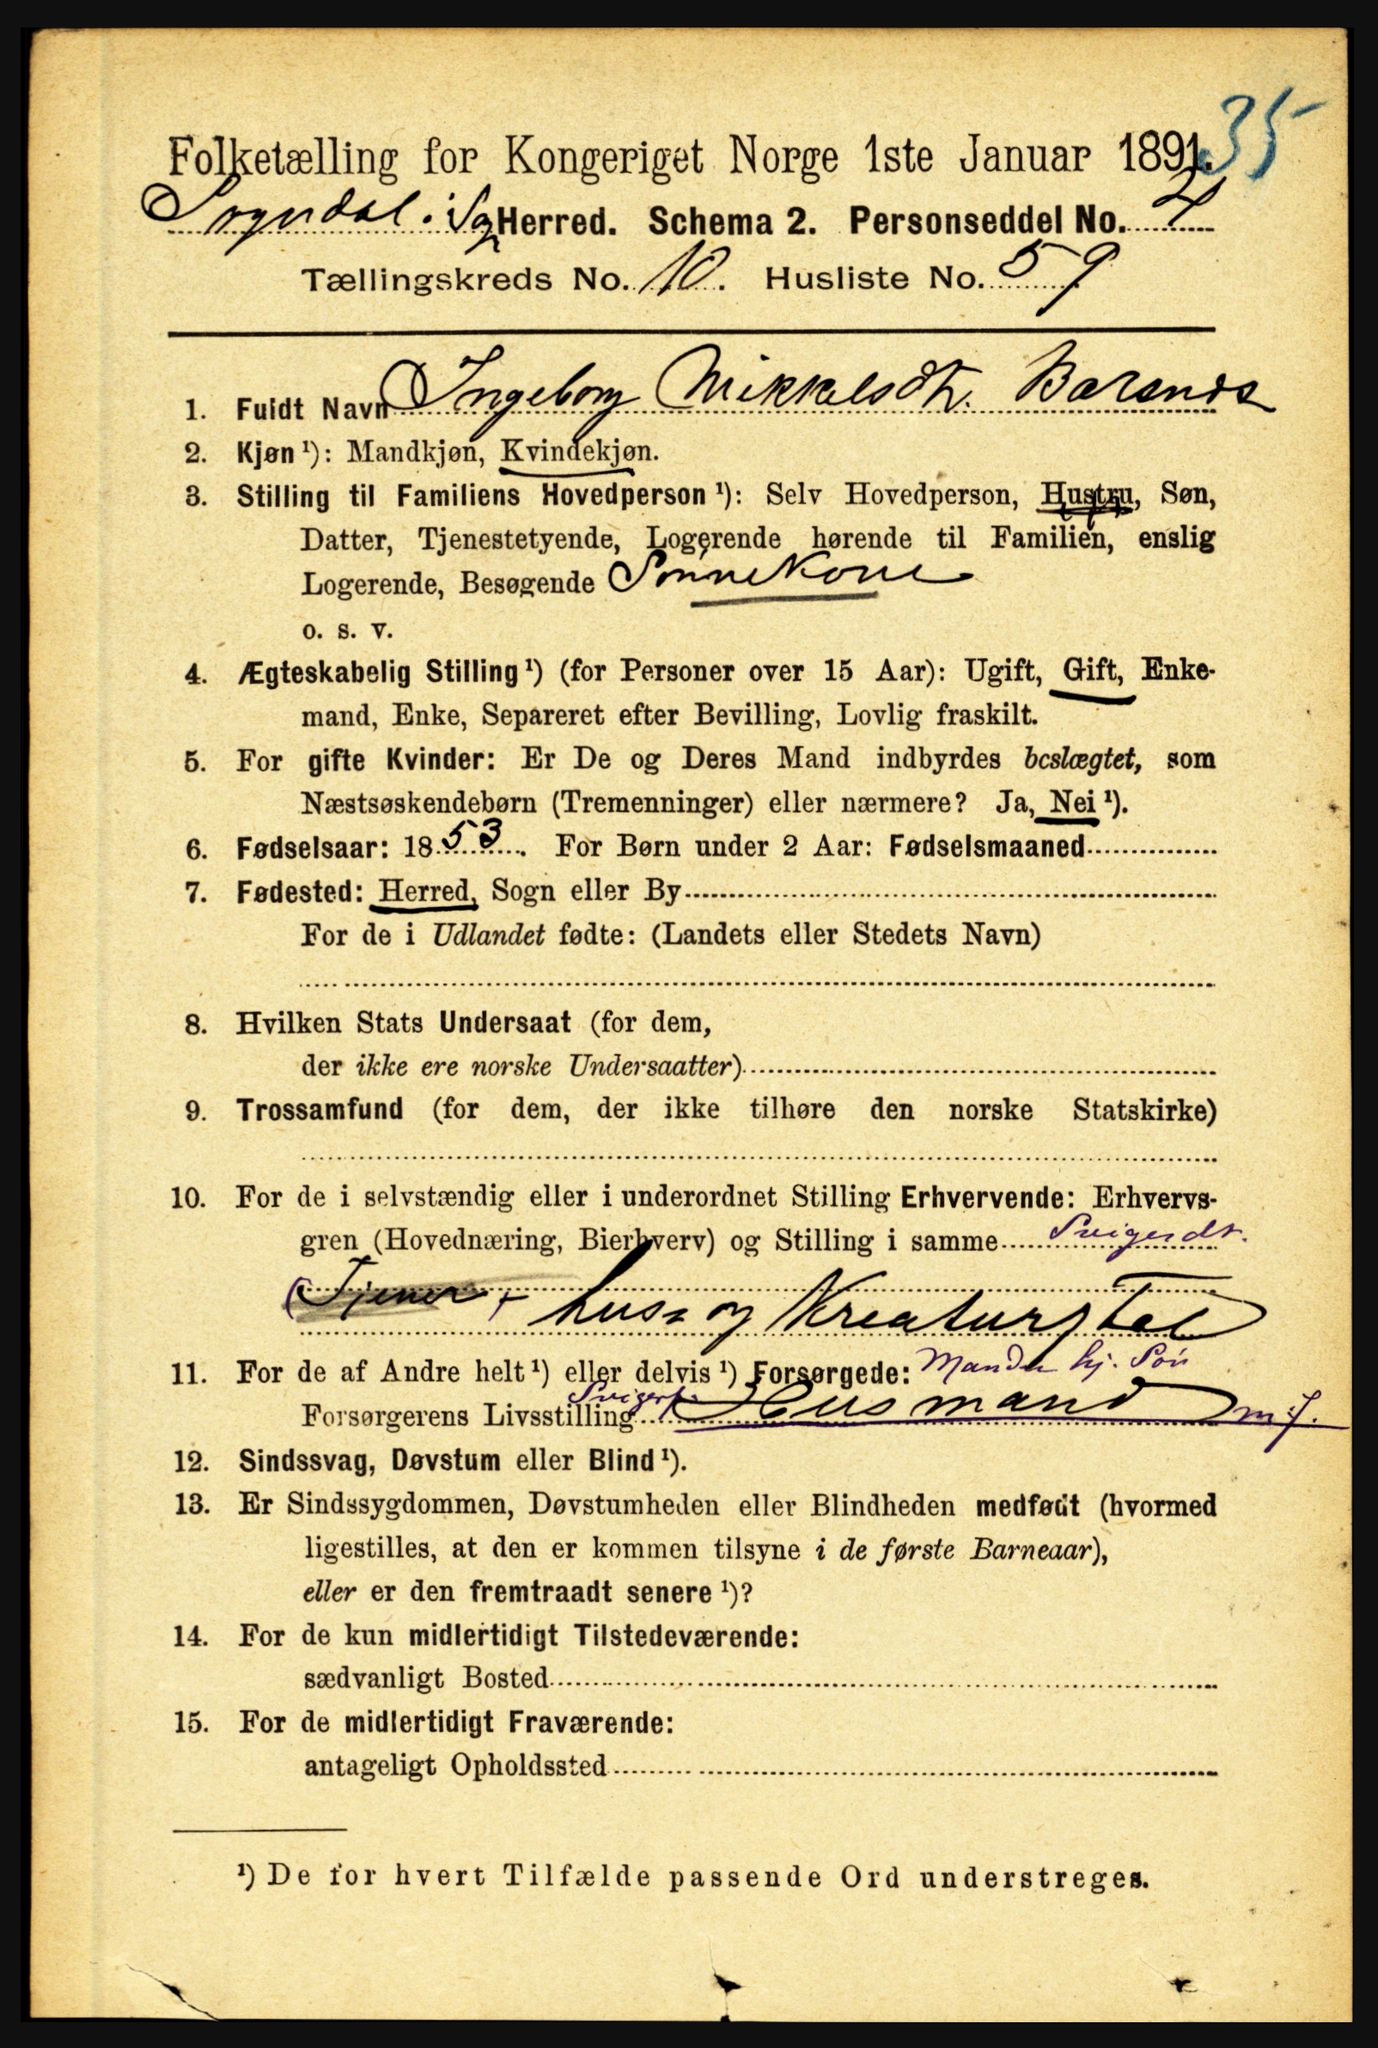 35
Folketælling for Kongeriget Norge 1ste Januar 1891.
Sogndal i Sg Herred. Schema 2. Personseddel No. 4
Tællingskreds No. 10. Husliste No. 59
1. Fuldt Navn Ingeborg Mikkelsdtr. Barsnes
2. Kjøn ¹): Mandkjøn, Kvindekjøn.
3. Stilling til Familiens Hovedperson ¹): Selv Hovedperson, Hustru, Søn,
Datter, Tjenestetyende, Logerende hørende til Familien, enslig
Logerende, Besøgende Sønnekone
o. s. v.
4. Ægteskabelig Stilling ¹) (for Personer over 15 Aar): Ugift, Gift, Enke-
mand, Enke, Separeret efter Bevilling, Lovlig fraskilt.
5. For gifte Kvinder: Er De og Deres Mand indbyrdes beslægtet, som
Næstsøskendebørn (Tremenninger) eller nærmere? Ja, Nei ¹).
6. Fødselsaar: 1853. For Børn under 2 Aar: Fødselsmaaned
7. Fødested: Herred, Sogn eller By
For de i Udlandet fødte: (Landets eller Stedets Navn)
8. Hvilken Stats Undersaat (for dem,
der ikke ere norske Undersaatter)
9. Trossamfund (for dem, der ikke tilhøre den norske Statskirke)
10. For de i selvstændig eller i underordnet Stilling Erhvervende: Erhvervs-
gren (Hovednæring, Bierhverv) og Stilling i samme Svigerdt.
(Tjener + hus= og Kreaturstel
11. For de af Andre helt ¹) eller delvis ¹) Forsørgede: Manden hj. Søn
Forsørgerens Livsstilling Svigerf. Husmand m. J.
12. Sindssvag, Døvstum eller Blind ¹).
13. Er Sindssygdommen, Døvstumheden eller Blindheden medfødt (hvormed
ligestilles, at den er kommen tilsyne i de første Barneaar),
eller er den fremtraadt senere ¹)?
14. For de kun midlertidigt Tilstedeværende:
sædvanligt Bosted
15. For de midlertidigt Fraværende:
antageligt Opholdssted
¹) De for hvert Tilfælde passende Ord understreges.